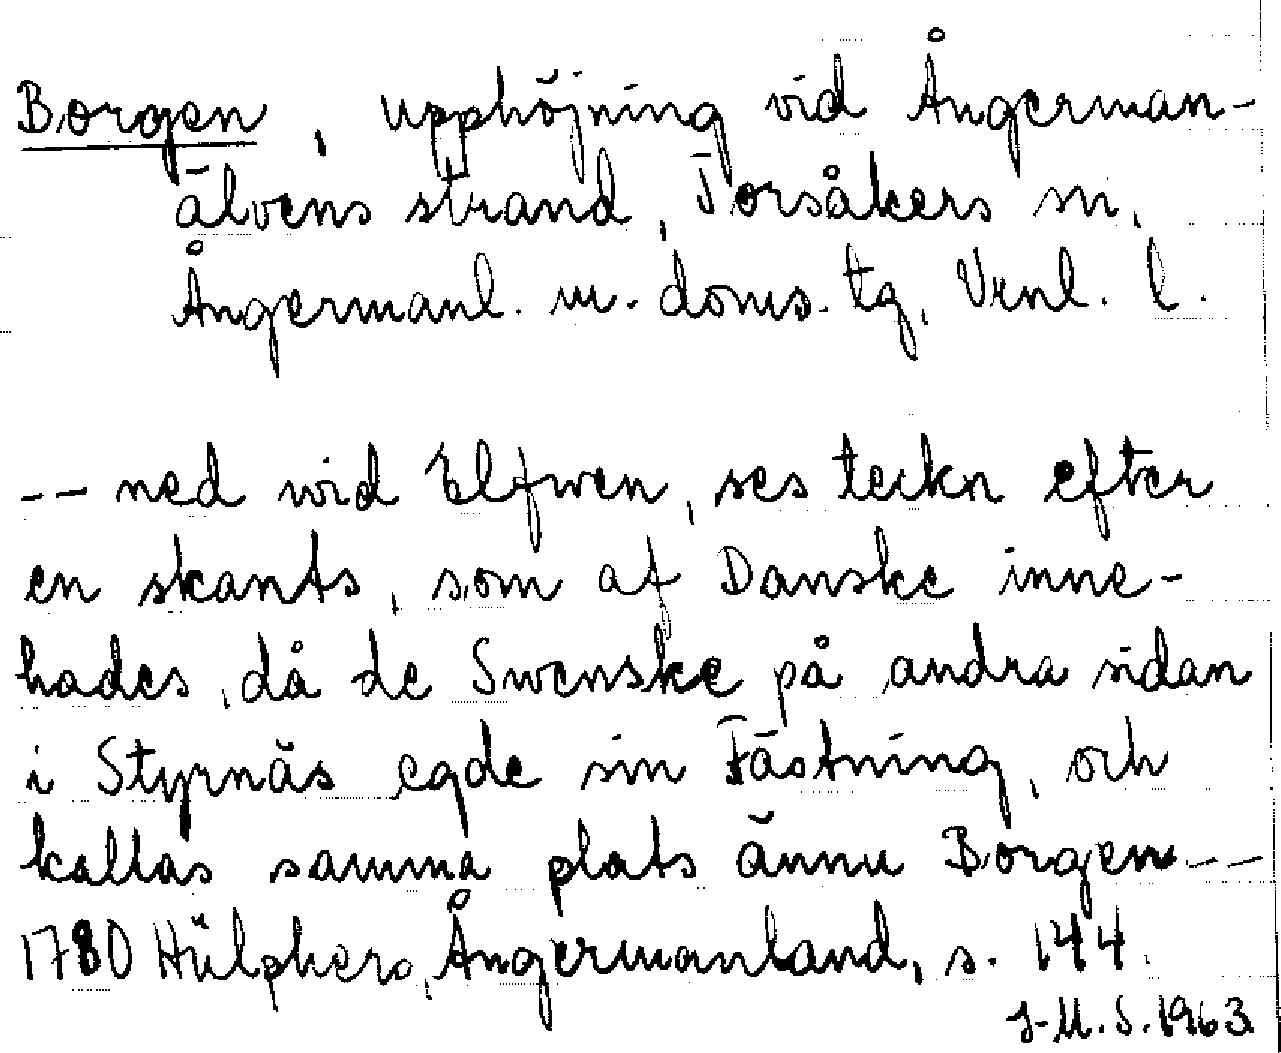 Borgen, upphöjning vid Ångerman-
älvens strand, Torsåkers sn,
Ångermanl. m. doms. tg, Vrnl. l.
-- ned wid Elfwen, ses teckn efter
en skants, som af Danske inne-
hades, då de Swenske på andra sidan
i Styrnäs egde sin Fästning, och
kallas samma plats ännu Borgen--
1780 Hülphers, Ångermanland, s. 144.
J-M.S. 1963